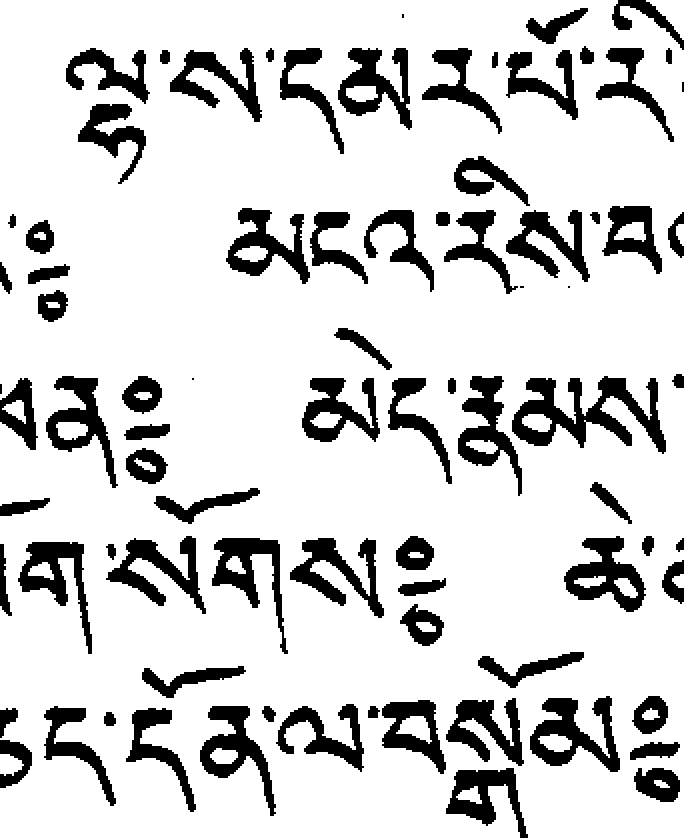 ལྷ་ས་དམར་པོ་རི་
༔ མངའ་རིས་བ
ན༔ མེད་རྣམས་
ག་སོགས༔ ཚེ་
ཅད་དོན་ལ་བསྒོམ༔